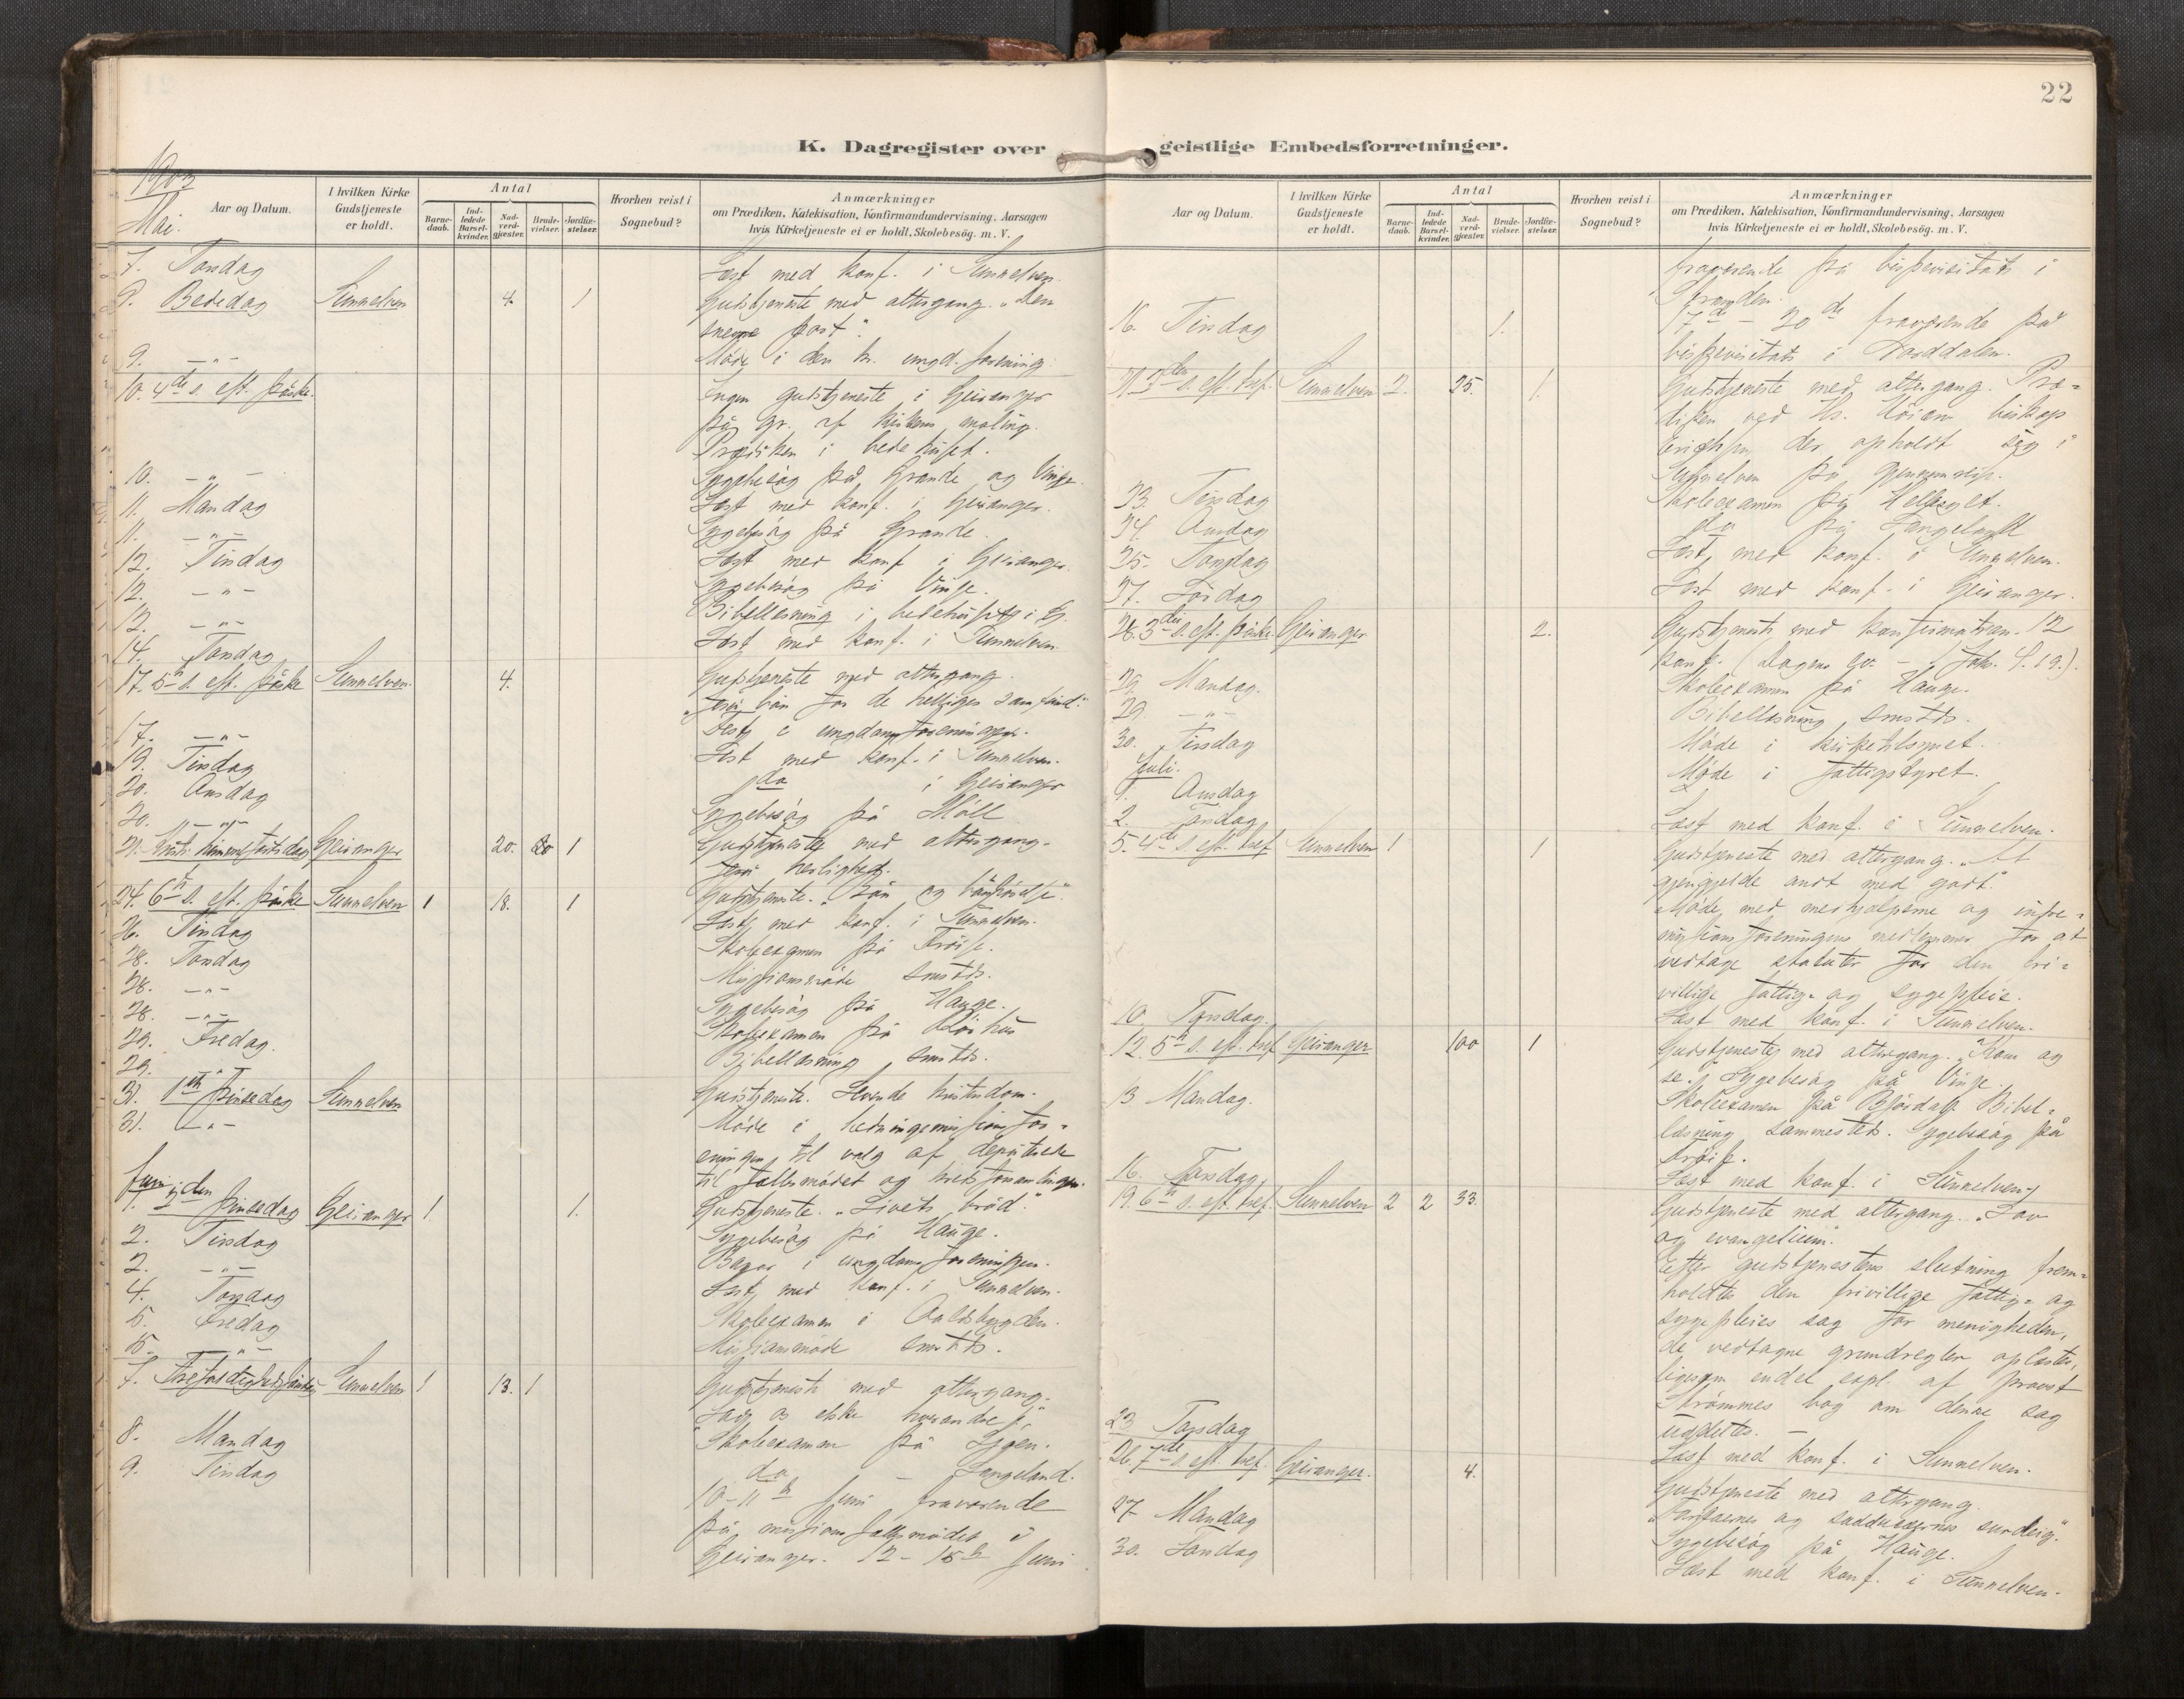 22
K. Dagregister over geistlige Embedsforretninger.
1903
Mai.
Aar og Datum.
I hvilken Kirke Gudstjeneste er holdt.
Antal
Barnedaab.
Indledede Barselkvinder.
Nadverdgjæster.
Brudevielser.
Jordfæstelser.
Hvorhen reist i Sognebud?
Anmærkninger
om Prædiken, Katekisation, Konfirmandundervisning, Aarsagen
hvis Kirketjeneste ei er holdt, Skolebesög. m. V.
7. Torsdag Læst med konf. i Sunnelven.
8. Bededag Sunnelven 4. 1 Gudstjeneste med altergang. „Den
snevre port".
9. -"- Möde i den kr. ungd. forening.
10. 4de s. eft. påske. Ingen gudstjeneste i Geiranger
på gr. af kirkens maling.
Prædiken i bedehuset.
10. -"- Sygebesög på Grande og Vinje.
11. Mandag Læst med konf. i Geiranger.
11. -"- Sygebesög på Grande.
12. Tirsdag Læst med konf i Geiranger.
12. -"- Sygebesög på Vinje.
12. -"- Bibellæsning i bedehuset i G.
14. Torsdag Læst med konf. i Sunnelven.
17. 5te s. eft. påske Sunnelven. 4. Gudstjeneste med altergang.
bön for de helliges samfund."
17. -"- Fest i ungdomsforeningen.
19. Tirsdag Læst med konf. i Sunnelven.
20. Onsdag do i Geiranger
20. -"- Sygebesög på Möll
21. Kristi himmelfartsdag Geiranger 20. 1 Gudstjeneste med altergang.
Jesu herlighed.
24. 6te s. eft. påske Sunnelven 1 18. 1 Gudstjeneste. „Bön og bönhörelse".
26. Tirsdag Læst med konf. i Sunnelven.
28. Torsdag Skoleexamen på Fröise.
28. -"- Missionsmöde smstds.
28. -"- Sygebesög på Hauge.
29. Fredag. Skoleexamen på
29. -"- Bibellæsning smstds.
31. 1ste pinsedag Sunnelven Gudstjeneste. Levende kristendom.
31. -"- Möde i hedningemissionsfor-
eningen til valg af deputerede
til fællesmödet og kredsforsamlingen.
Juni
1. 2den pinsedag Geiranger 1. 1. Gudstjeneste. „Livets bröd".
2. Tirsdag Sygebesög på Hauge.
2. -"- Basar i ungdomsforeningen.
4. Torsdag Læst med konf. i Sunnelven.
5. Fredag Skoleexamen i
5. -"- Missionsmöde smstds.
7. Trefoldighedssöndag Sunnelven 1 13. 1 Gudstjeneste med altergang.
„Lad os elske hverandre".
8. Mandag Skoleexamen på Lygen.
9. Tirsdag do - Langeland.
10-11te Juni fraværende
på missionsfællesmödet i
Geiranger. 12-15te Juni
Aar og Datum.
I hvilken Kirke Gudstjeneste er holdt.
Antal
Barnedaab.
Indledede Barselkvinder.
Nadverdgjæster.
Brudevielser.
Jordfæstelser.
Hvorhen reist i Sognebud?
Anmærkninger
om Prædiken, Katekisation, Konfirmandundervisning, Aarsagen
hvis Kirketjeneste ei er holdt, Skolebesög. m. V.
fraværende på bispevisitats i
Stranden.
16. Tirsdag 1. 17de - 20de fraværende på
bispevisitats i Norddalen.
21. 2den s. eft. tref. Sunnelven 2. 25. 1. Gudstjeneste med altergang. Præ-
diken ved Hs. Höiærv. biskop
Erichsen, der opholdt sig i
Sunnelven på gjennemreise.
23. Tirsdag Skoleexamen på Hellesylt.
24. Onsdag do på Langeland
25. Torsdag Læst med konf. i Sunnelven.
27. Lördag Læst med konf. i Geiranger.
28. 3die s. eft. påske. Geiranger 2. Gudstjeneste med konfirmation. 12
konf. (Dagens ev. - 1 Joh. 4.19.).
29. Mandag. Skoleexamen på Hauge.
29. -"- Bibellæsning smstds.
30. Tirsdag Möde i kirketilsynet.
Juli.
1. Onsdag Möde i fattigstyret.
2. Torsdag Læst med konf. i Sunnelven.
5. 4de s. eft. tref Sunnelven 1 1 Gudstjeneste med altergang. „At
gjengjelde ondt med godt."
Möde med medhjælperne og indre-
missionsforeningens medlemmer for at
vedtage statuter for den fri-
villige fattig- og sygepleie.
10. Torsdag. Læst med konf. i Sunnelven.
12. 5te s. eft. tref Geiranger 100 1 Gudstjeneste med altergang. „Kom og
se." Sygebesög på Vinje.
13. Mandag. Skoleexamen på Björdal. Bibel-
læsning sammesteds. Sygebesög på
Fröise.
16. Torsdag. Læst med konf. i Sunnelven.
19. 6te s. eft. tref. Sunnelven 2 2 33. Gudstjeneste med altergang. „Lov
og evangelium".
Efter gudstjenestens slutning frem-
holdtes den frivillige fattig- og
sygepleies sag for menigheden,
de vedtagne grundregler oplæstes,
ligesom endel expl. af provst
Strömmes bog om denne sag
uddeltes. -
23 Torsdag Læst med konf. i Sunnelven.
26. 7de s. eft. tref. Geiranger. 4. Gudstjeneste med altergang.
„Farisæernes og sadducæernes surdeig."
27. Mandag Sygebesög på Hauge.
30. Torsdag Læst med konf. i Sunnelven.